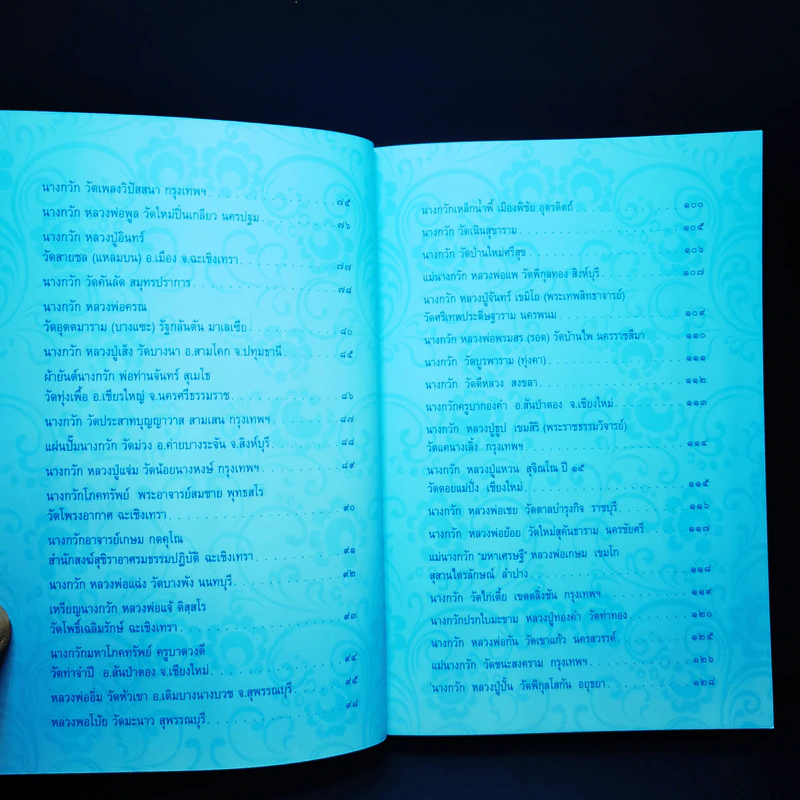 นางกวัก วัดเพลงวิปัสสนา กรุงเทพฯ ๗๕
นางกวัก หลวงพ่อพูล วัดใหม่ปิ่นเกลียว นครปฐม ๗๖
นางกวัก หลวงปู่อินทร์
วัดสายชล (แหลมบน) อ.เมือง จ.ฉะเชิงเทรา ๗๗
นางกวัก วัดคันลัด สมุทรปราการ ๗๘
นางกวัก หลวงพ่อครณ
วัดอุตตมาราม (บางแซะ) รัฐกลันตัน มาเลเซีย ๘๐
นางกวัก หลวงปู่เส็ง วัดบางนา อ.สามโคก จ.ปทุมธานี ๘๕
ผ้ายันต์นางกวัก พ่อท่านจันทร์ สุเมโธ
วัดทุ่งเฟื้อ อ.เชียรใหญ่ จ.นครศรีธรรมราช ๘๖
นางกวัก วัดประสาทบุญญาวาส สามเสน กรุงเทพฯ ๘๗
แผ่นปั๊มนางกวัก วัดม่วง อ.ค่ายบางระจัน จ.สิงห์บุรี ๘๘
นางกวัก หลวงปู่แจ่ม วัดน้อยนางหงษ์ กรุงเทพฯ ๘๙
นางกวักโภคทรัพย์ พระอาจารย์สมชาย พุทธสโร
วัดโพรงอากาศ ฉะเชิงเทรา ๙๐
นางกวักอาจารย์เกษม กตคุโณ
สำนักสงฆ์สุชิราอาศรมธรรมปฏิบัติ ฉะเชิงเทรา ๙๑
นางกวัก หลวงพ่อแฉ่ง วัดบางพัง นนทบุรี ๙๒
เหรียญนางกวัก หลวงพ่อแจ้ ติสฺสโร
วัดโพธิ์เฉลิมรักษ์ ฉะเชิงเทรา ๙๓
นางกวักมหาโภคทรัพย์ ครูบาดวงดี
วัดท่าจำปี อ.สันป่าตอง จ.เชียงใหม่ ๙๔
หลวงพ่ออิ่ม วัดหัวเขา อ.เดิมบางนางบวช จ.สุพรรณบุรี ๙๕
หลวงพ่อโบ้ย วัดมะนาว สุพรรณบุรี ๙๘
นางกวักเหล็กน้ำพี้ เมืองพิชัย อุตรดิตถ์ ๑๐๐
นางกวัก วัดเนินสุขาราม ๑๐๕
นางกวัก วัดบ้านใหม่ศรีสุข ๑๐๖
แม่นางกวัก หลวงพ่อแพ วัดพิกุลทอง สิงห์บุรี ๑๐๗
นางกวัก หลวงปู่จันทร์ เขมิโย (พระเทพสิทธาจารย์)
วัดศรีเทพประดิษฐาราม นครพนม ๑๐๙
นางกวัก หลวงพ่อพรมสร (รอด) วัดบ้านไพ นครราชสีมา ๑๑๐
นางกวัก วัดบูรพาราม (ทุ่งคา) ๑๑๑
นางกวัก วัดดีหลวง สงขลา ๑๑๒
นางกวักครูบากองคำ อ.สันป่าตอง จ.เชียงใหม่ ๑๑๓
นางกวัก หลวงปู่ธูป เขมสิริ (พระราชธรรมวิจารย์)
วัดแคนางเลิ้ง กรุงเทพฯ ๑๑๔
นางกวัก หลวงปู่แหวน สุจิณโณ ปี ๑๕
วัดดอยแม่ปั๋ง เชียงใหม่ ๑๑๕
นางกวัก หลวงพ่อเชย วัดตาลบำรุงกิจ ราชบุรี ๑๑๖
นางกวัก หลวงพ่อย้อย วัดใหม่สุคันธาราม นครชัยศรี ๑๑๗
แม่นางกวัก "มหาเศรษฐี" หลวงพ่อเกษม เขมโก
สุสานไตรลักษณ์ ลำปาง ๑๑๘
นางกวัก วัดไก่เตี้ย เขตตลิ่งชัน กรุงเทพฯ ๑๑๙
นางกวักปรกใบมะขาม หลวงปู่ทองดำ วัดท่าทอง ๑๒๐
นางกวัก หลวงพ่อกัน วัดเขาแก้ว นครสวรรค์ ๑๒๕
แม่นางกวัก วัดชนะสงคราม กรุงเทพฯ ๑๒๖
นางกวัก หลวงปู่ปั้น วัดพิกุลโสกัน อยุธยา ๑๒๘